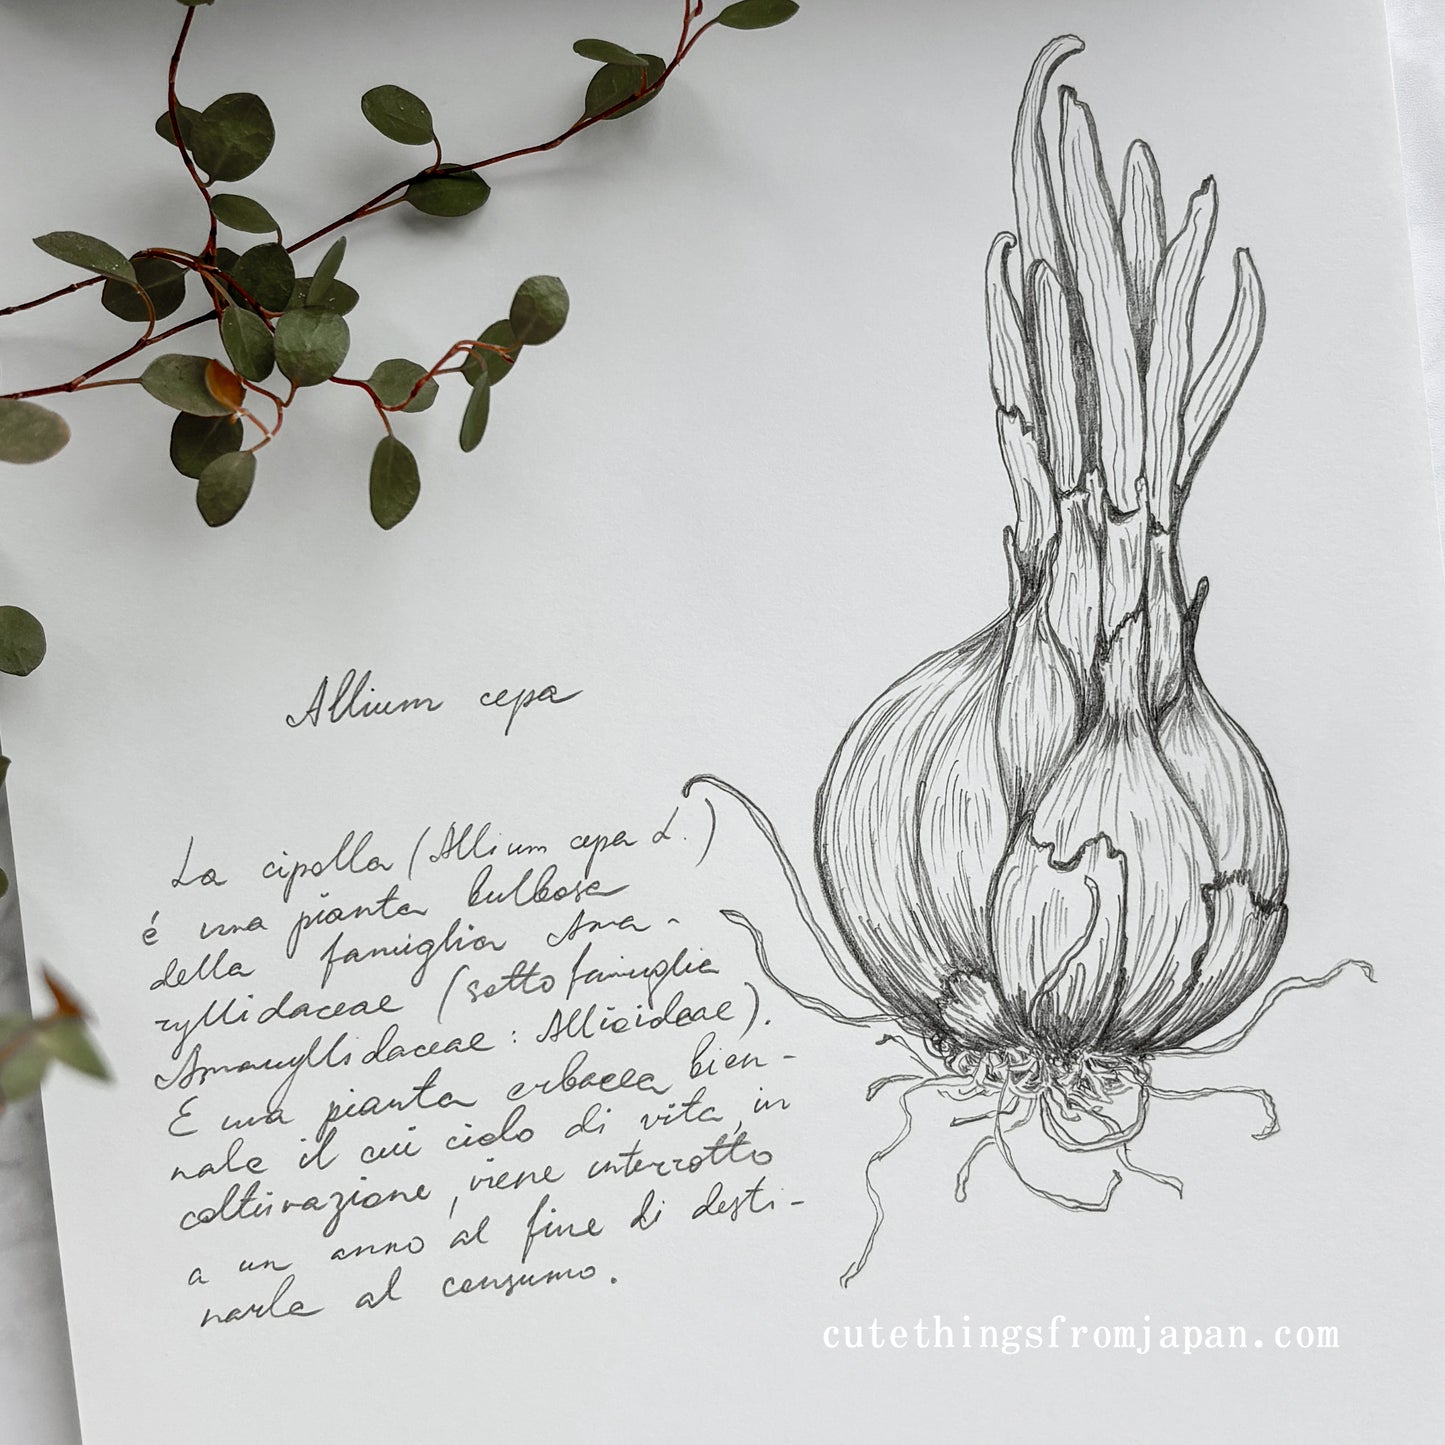 Allium cepa
La cipolla (Allium cepa L.)
é una pianta bulbosa
della famiglia Ama-
ryllidaceae (sottofamiglia
Amaryllidaceae: Allioideae).
E una pianta erbacea bien-
nale il cui ciclo di vita, in
coltivazione, viene interrotto
a un anno al fine di desti-
narla al consumo.
cutethingsfromjapan.com